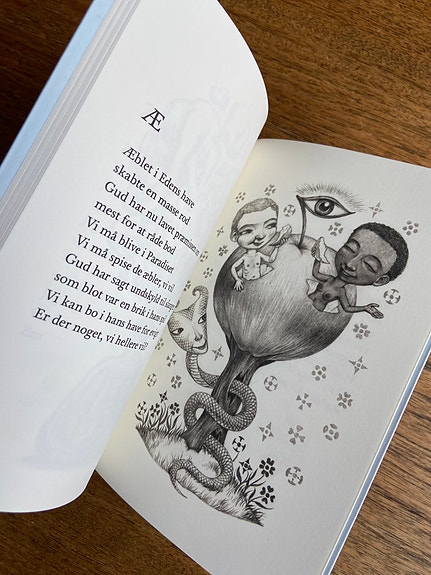 Æ
Æblet i Edens have
skabte en masse rod
Gud har nu lavet
mest for at råde bod
Vi må blive i Paradiset
Vi må spise de æbler, vi vil
Gud har sagt undskyld til
som blot var en brik i hans
Vi kan bo i hans have for
Er der noget, vi hellere vil?